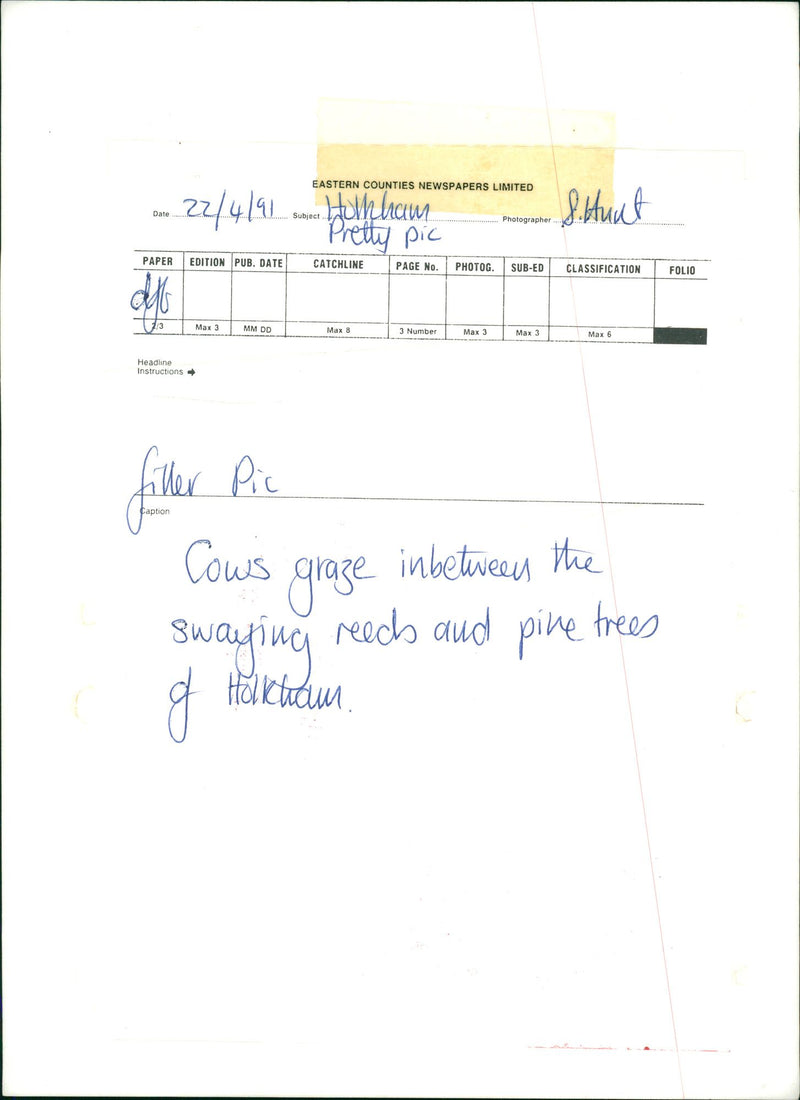 EASTERN COUNTIES NEWSPAPERS LIMITED
Date 22/4/91 Subject Holkham Photographer S. Hunt
Pretty pic
PAPER EDITION PUB. DATE CATCHLINE PAGE No. PHOTOG. SUB-ED CLASSIFICATION FOLIO
2/3 Max 3 MM DD Max 8 3 Number Max 3 Max 3 Max 6
Headline
Instructions →
filler Pic
Caption
Cows graze inbetween the
swaying reeds and pine trees
of Holkham.